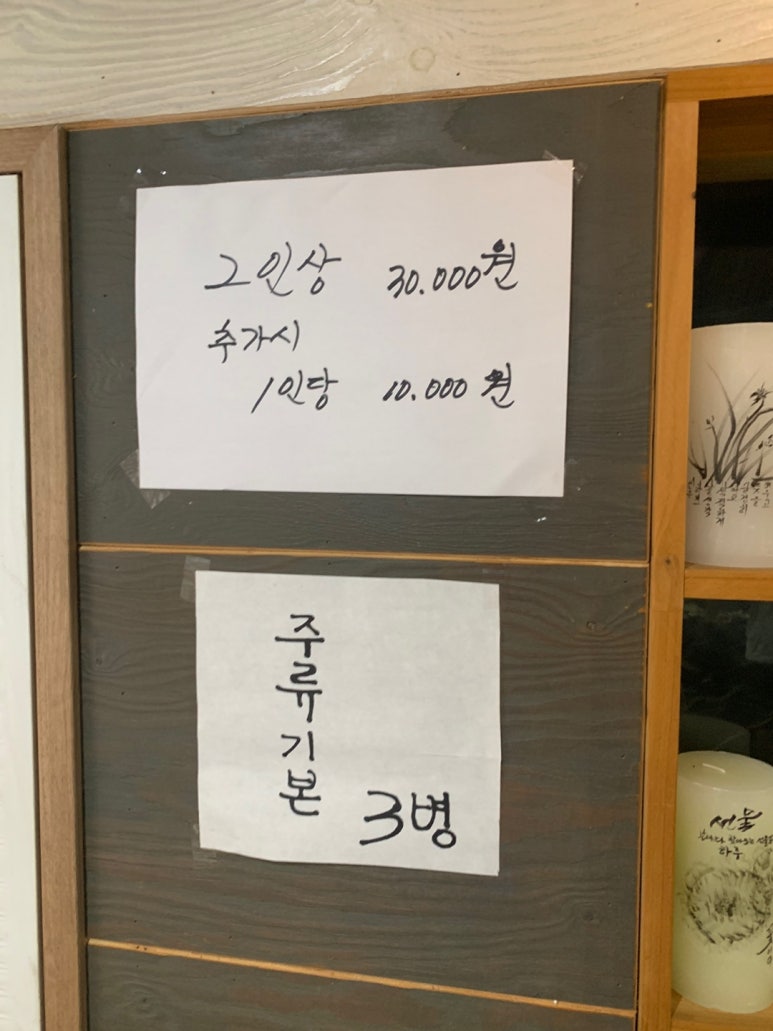 2인상 30.000원
추가시
1인당 10.000원
주류기본 3병
선물
하루